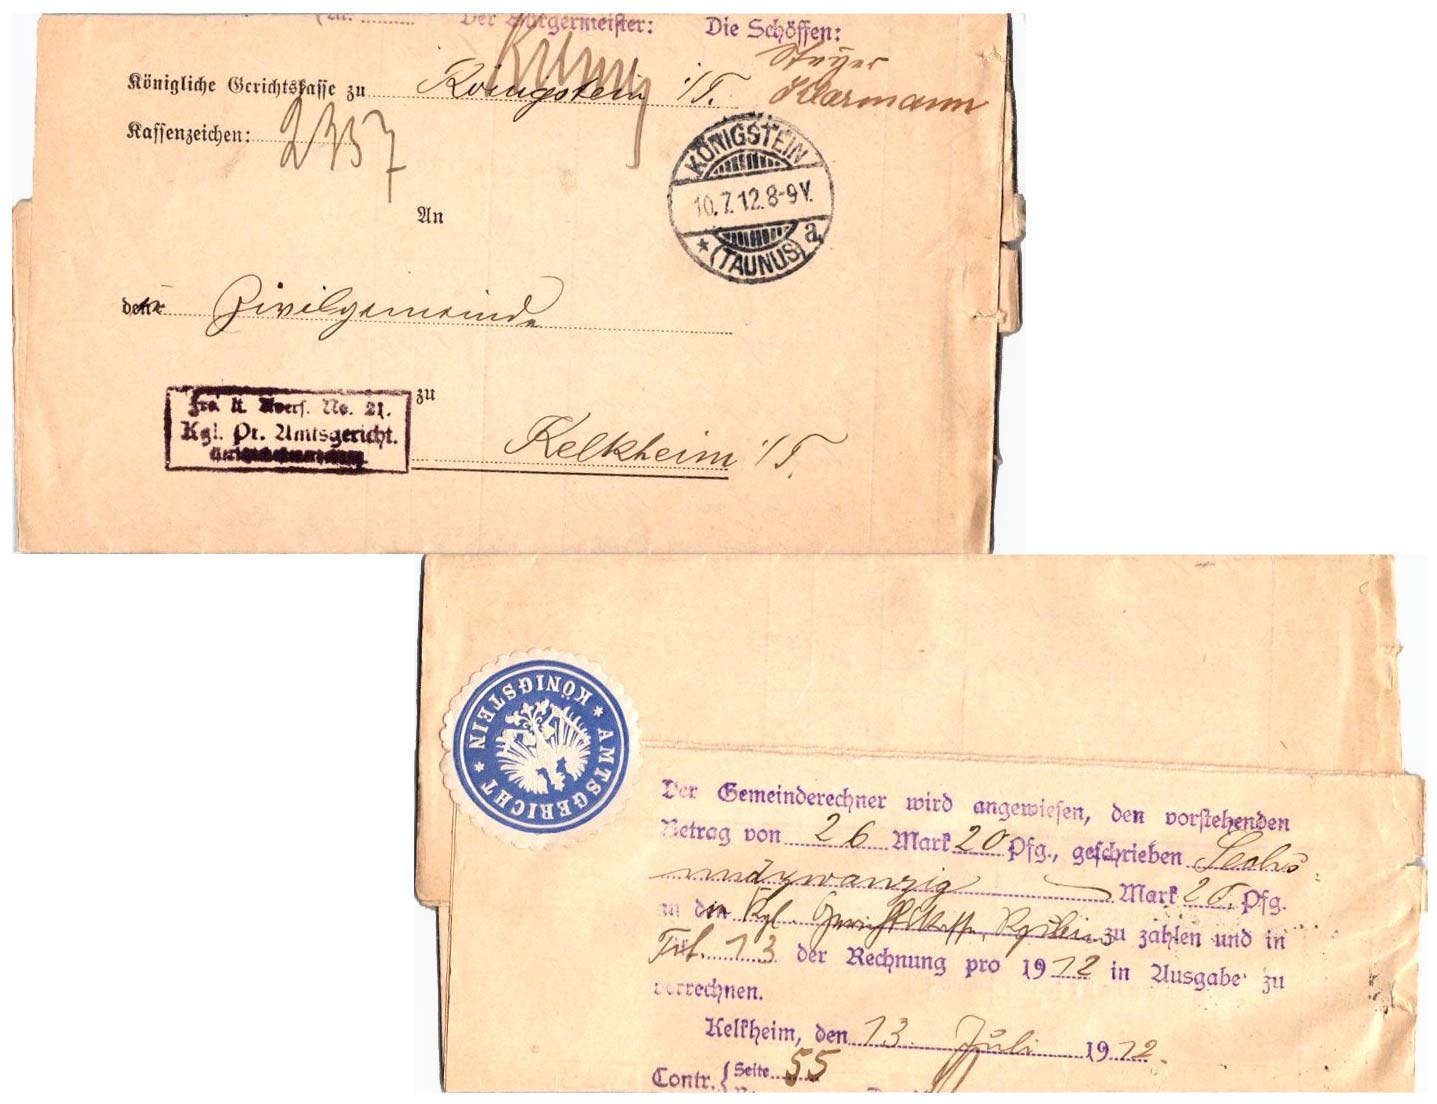 Der Bürgermeister: Die Schöffen:
Königliche Gerichtskasse zu Königstein i/T.
Kassenzeichen: 2337
KÖNIGSTEIN
10.7.12.8-9V.
* (TAUNUS) a
An
den Zivilgemeinde
Frd. lt. Avers. No. 21.
Kgl. Pr. Amtsgericht.
zu
Kelkheim i/T.
* AMTSGERICHT * KÖNIGSTEIN
Der Gemeinderechner wird angewiesen, den vorstehenden
Betrag von 26 Mark 20 Pfg., geschrieben Sechs
undzwanzig Mark 20 Pfg.
an die Kgl. Gerichtskasse, Kgstein zu zahlen und in
Tit. 13 der Rechnung pro 1912 in Ausgabe zu
verrechnen.
Kelkheim, den 13. Juli 1912.
Contr. { Seite 55